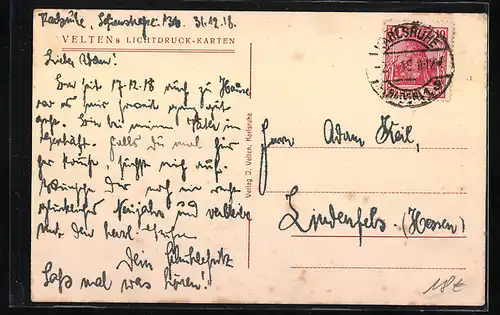 Karlsruhe, Sofienstraße 136. 31.12.18.
VELTENs LICHTDRUCK-KARTEN
Lieber Adam!
Bin seit 17.12.18 auch zu Hause
Bin bei meinem Vater im
Geschäft. Falls du mal
her kommst, suche mich auf.
Wünsche Dir noch ein recht
glückliches Neujahr und verbleibe
mit den herzl. Grüßen
Dein Schulfreund
Laß mal was hören!
Verlag D. Velten, Karlsruhe
KARLSRUHE
10
Herrn Adam Keil,
Lindenfels (Hessen)
18 €